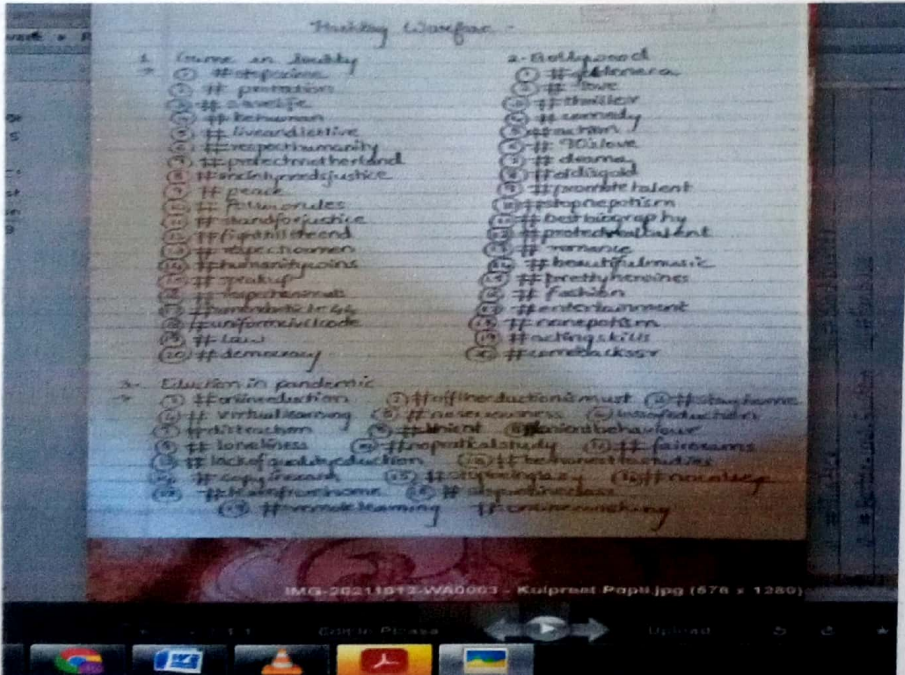 Hashtag Warfare -
1. Crime in Society
① #stopcrime
② # protation
③ # savelife
④ # behuman
⑤ # liveandletlive
⑥ # respecthumanity
⑦ # protectmotherland
⑧ #societyneedsjustice
⑨ # peace
⑩ # followrules
⑪ #standforjustice
⑫ #fighttilltheend
⑬ # respectwomen
⑭ #humanitywins
⑮ # speakup
⑱ #uniformcivilcode
⑲ # law
⑳ # democracy
2- Bollywood
① #goldenera
② # love
③ # thriller
④ # comedy
⑤ # action
⑥ # 90's love
⑦ # drama
⑧ #oldisgold
⑨ #promotetalent
⑩ #stopnepotism
⑪ # bestbiography
⑫ # protectrealtalent
⑬ # romance
⑭ # beautifulmusic
# prettyheroines
# fashion
#entertainment
# nonepotism
⑲ #actingskills
⑳ #comebackssr
3- Eduction in pandemic
① #onlineeduction ② #offlineeductionismust ③ #stayhome
④ # virtuallearning ⑤ # noseriousness ⑥ #lossofeduction
⑦ #distraction
# loneliness #nopraticalstudy # fairexams
# lackofqualityeduction # behonesttostudies
# copyinexam # stopbeinglazy # nocollege
#learnfromhome # stoponlineclass
#remotelearning # onlinecoaching
IMG-20211012-WA0003 - Kulpreet Popli.jpg (576 x 1280)
Edit in Picasa Upload